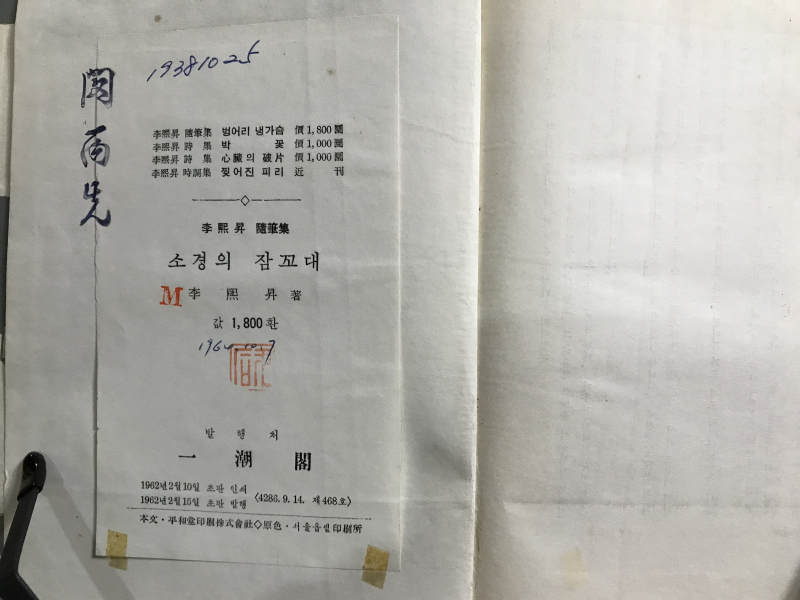 19381025
閔丙先
李熙昇 隨筆集 벙어리 냉가슴 價 1,800圜
李熙昇 詩集 박꽃 價 1,000圜
李熙昇 詩集 心臟의 破片 價 1,000圜
李熙昇 時調集 찢어진 피리 近刊
李熙昇 隨筆集
소경의 잠꼬대
M 李熙昇 著
값 1,800환
발행처
一潮閣
1962년2월10일 초판 인쇄
1962년2월15일 초판 발행
〈4286. 9. 14. 제468호〉
本文·平和堂印刷株式會社◇原色·서울옵셑印刷所